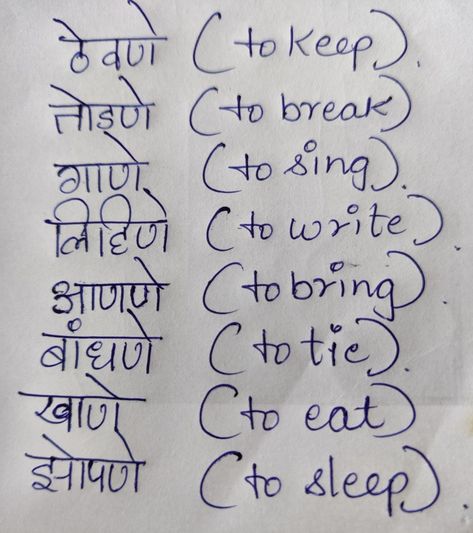 ठेवणे (to keep).
तोडणे (to break)
गाणे (to sing).
लिहिणे (to write).
आणणे (to bring).
बांधणे (to tie).
खाणे (to eat)
झोपणे (to sleep).